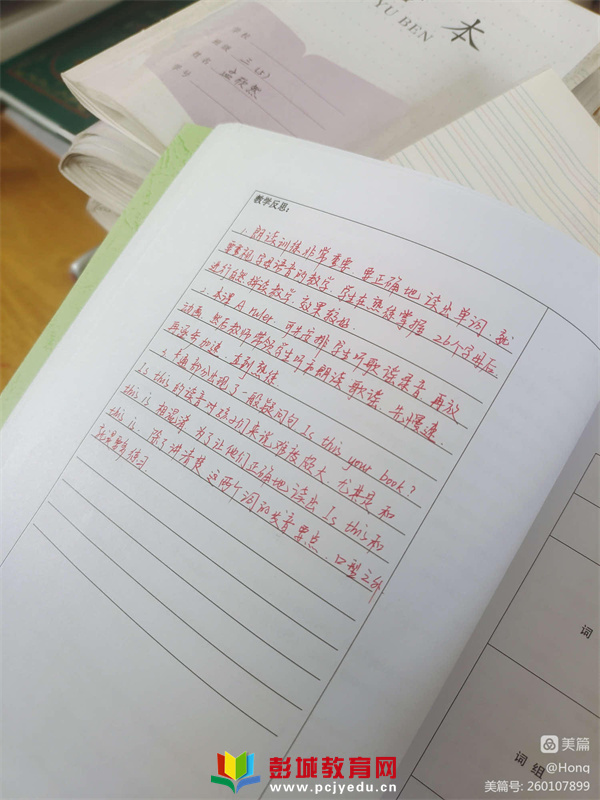 本
YU BEN
学校
班级 三(3)
姓名
学号
教学反思:
1. 朗读训练非常重要, 要正确地读出单词, 就
要重视字母语音的教学, 学生在熟练掌握26个字母后
进行自然拼读教学, 效果较好.
2. 本课 A ruler, 可先安排学生听歌谣录音, 再放
动画, 然后教师带领学生听声朗读歌谣, 先慢速
再逐步加速, 直到熟练
3. 卡通部分出现了一般疑问句 Is this your book?
Is this 的读音对孩子们来说难度颇大, 尤其是和
this is 相混淆, 为了让他们正确地读出 Is this 和
this is, 除了讲清楚这两个词的发音要点、口型之外
就是要多练习.
词
词组
美篇
@Hong
美篇号: 260107899
彭城教育网
www.pcjyedu.cn